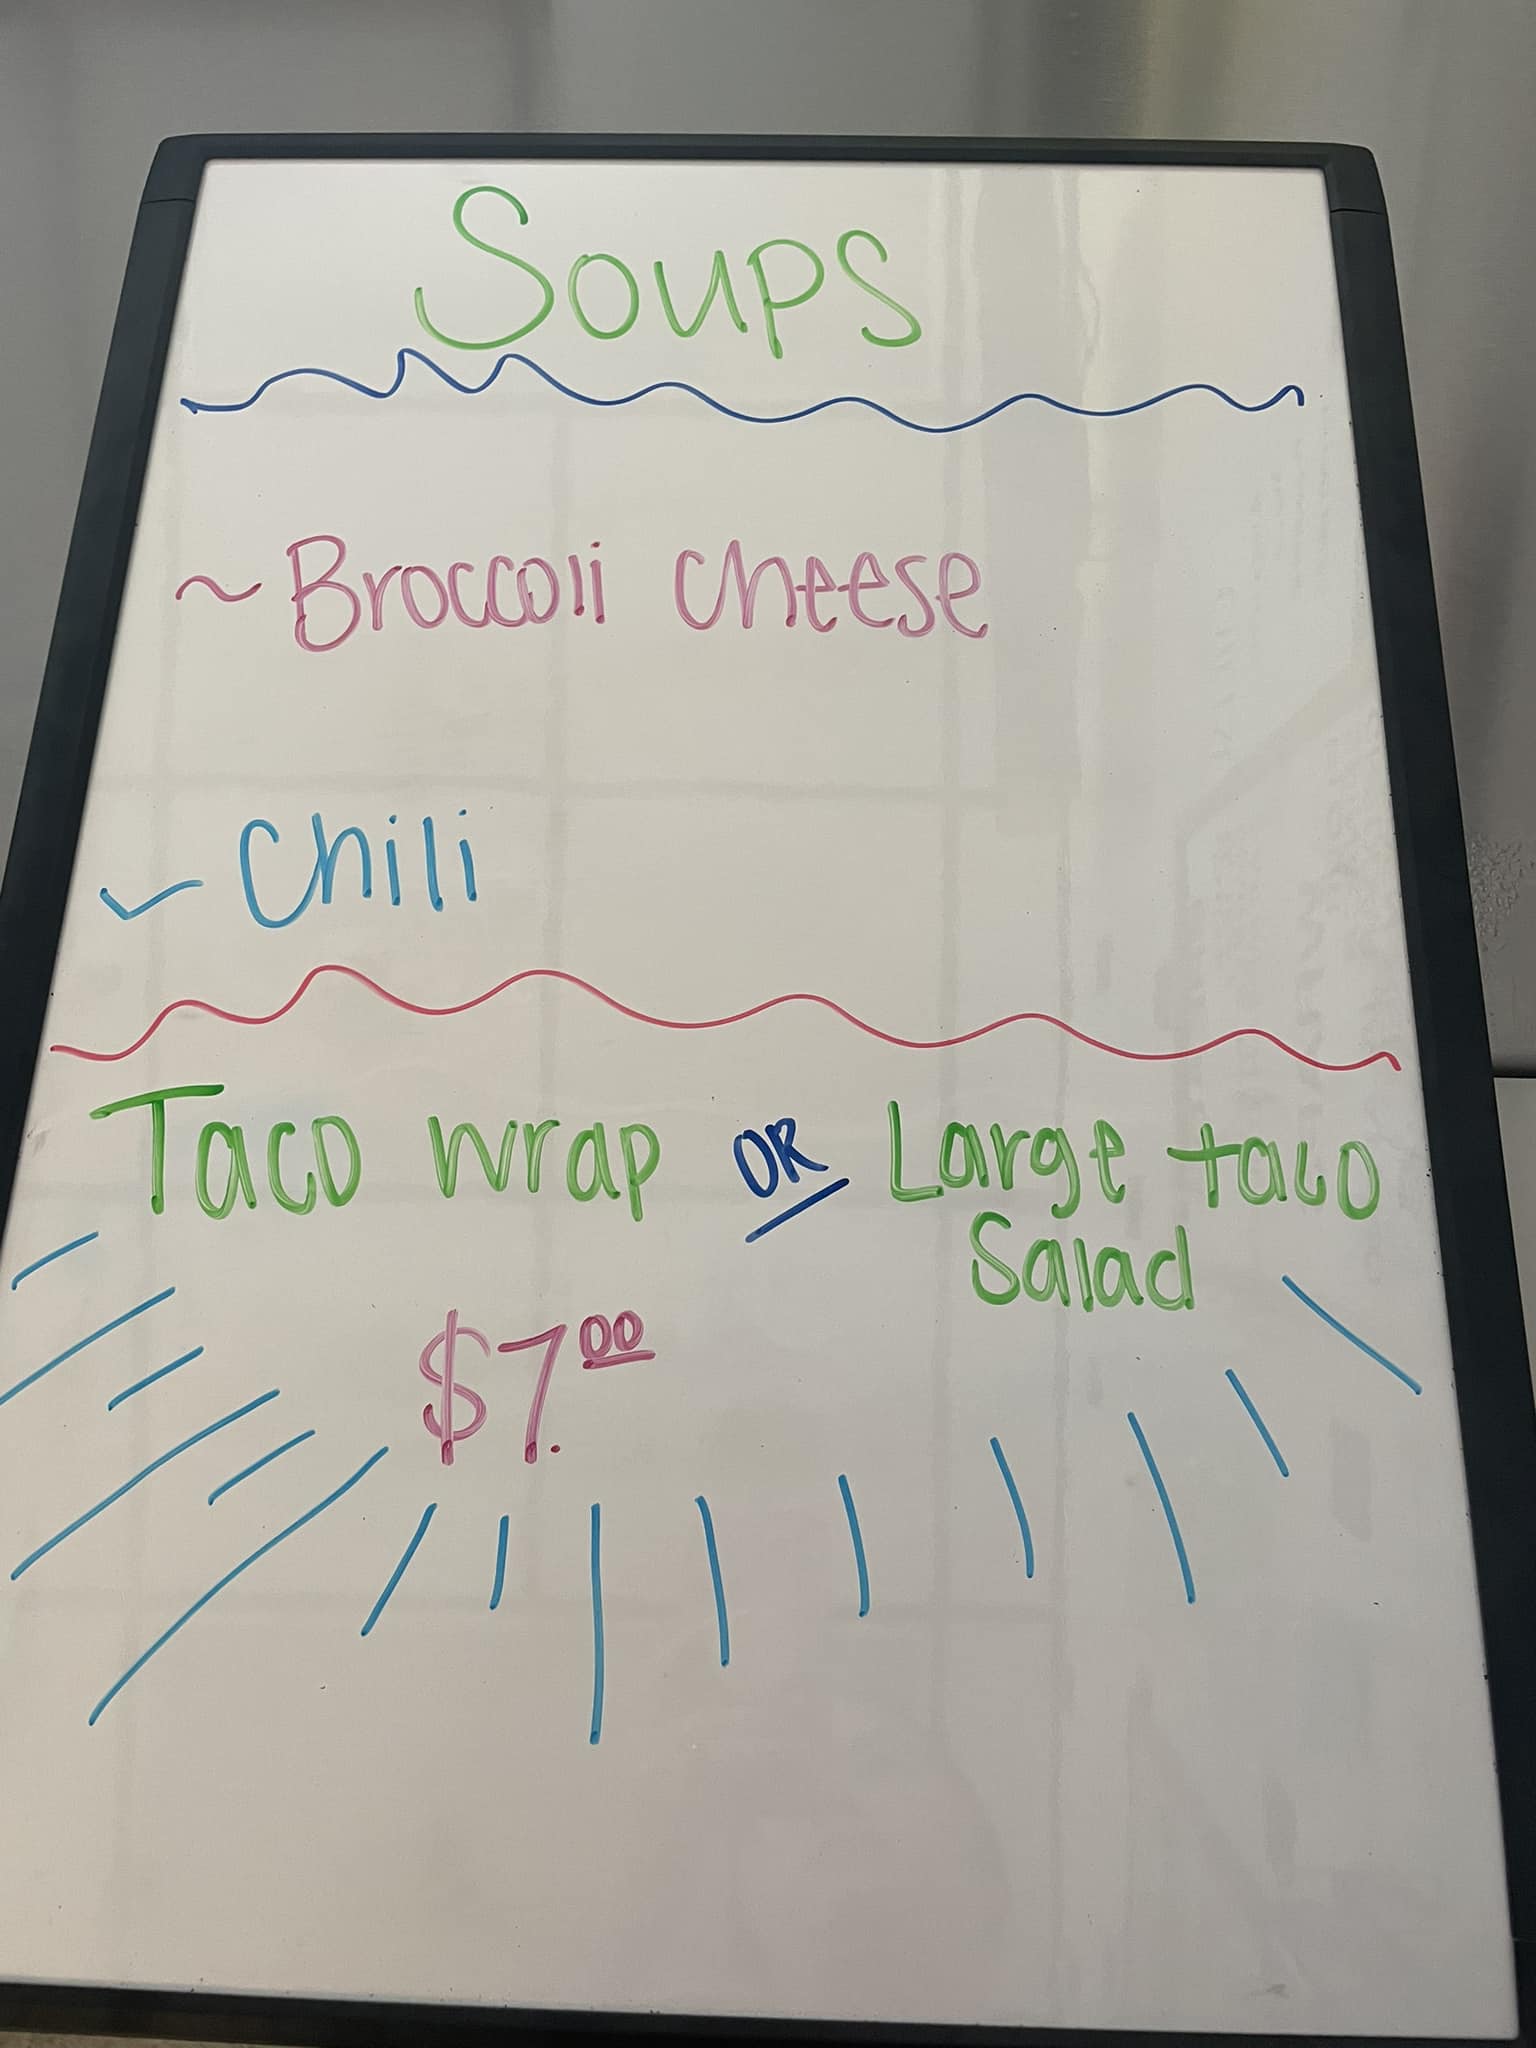 Soups
~ Broccoli cheese
- Chili
Taco wrap OR Large taco
Salad
$7.00